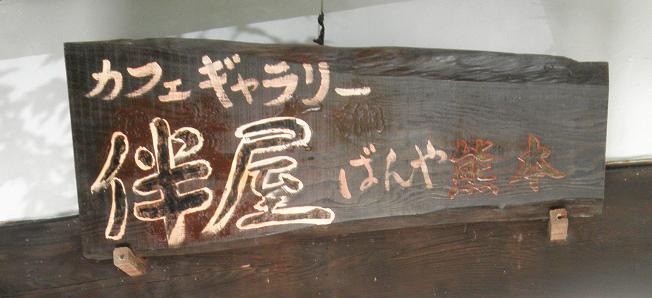 カフェギャラリー
伴屋 ばんや 熊本